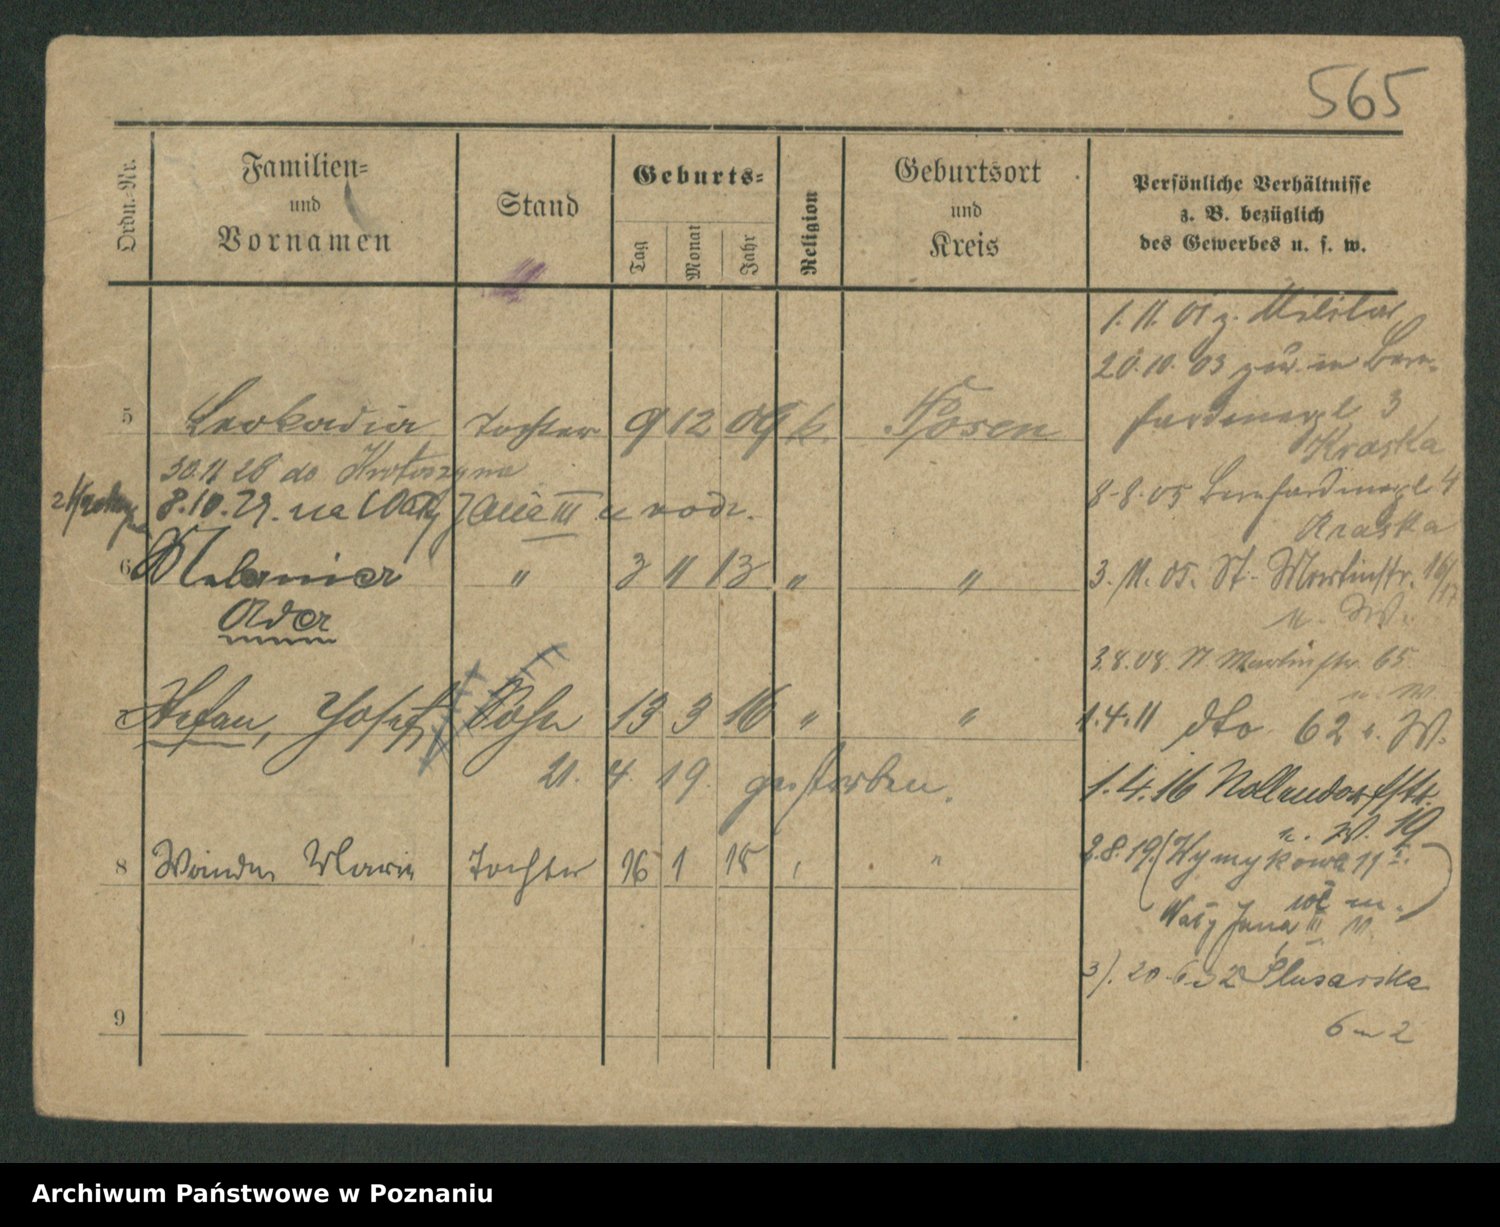 565
Ordn.-Nr.
Familien-
und
Vornamen
Stand
Geburts-
Tag
Monat
Jahr
Religion
Geburtsort
und
Kreis
Persönliche Verhältnisse
z. B. bezüglich
des Gewerbes u. s. w.
1.11.01 z. Militär
20.10.03 zür. in Bern-
hardinerpl 3
Kraska
5 Leokadia Tochter 9 12 09 k. Posen
30.11 28 do Krotoszyna
8.10.29. na Wały Jana III u rodz.
8.8.05 Bernhardinerpl 4
Kraska
6 Melania " 3 11 13 " "
Ader
3.11.05. St. Martinstr. 16/17
u. W.
3.8.08. St Martinstr. 65
u. W.
Stefan, Josef Sohn 13 3 16 " "
1.4.11 dto 62 u. W.
21. 4. 19. gestorben.
1.4.16 Nollendorfstr.
u. W. 19
8 Wanda Maria Tochter 16 1 18 " "
2.8.19.
Wały Jana III
3). 20.6.32 Ślusarska
6 m 2
9
Archiwum Państwowe w Poznaniu